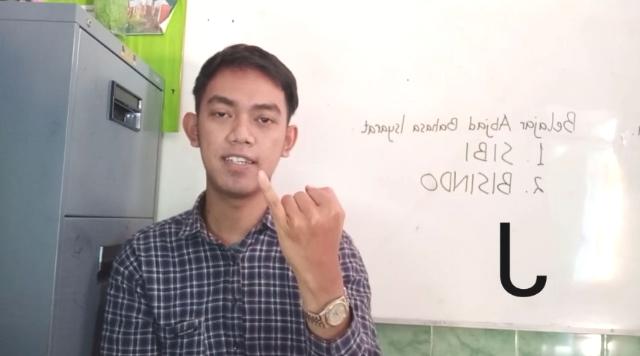 Belajar Abjad Bahasa Isyarat
1. SIBI
2. BISINDO
J